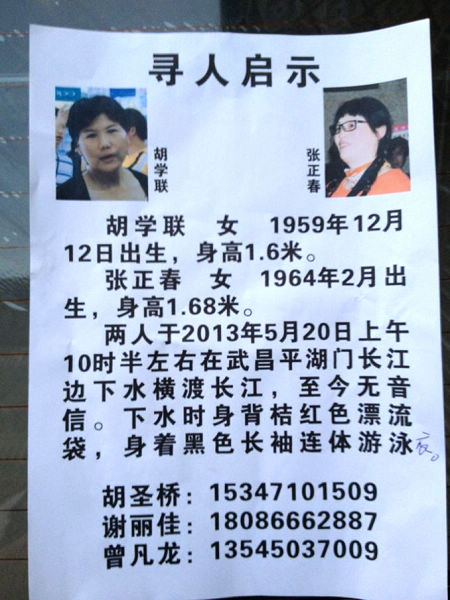 寻人启示
胡学联
张正春
胡学联 女 1959年12月
12日出生，身高1.6米。
张正春 女 1964年2月出
生，身高1.68米。
两人于2013年5月20日上午
10时半左右在武昌平湖门长江
边下水横渡长江，至今无音
信。下水时身背桔红色漂流
袋，身着黑色长袖连体游泳衣。
胡圣桥：15347101509
谢丽佳：18086662887
曾凡龙：13545037009